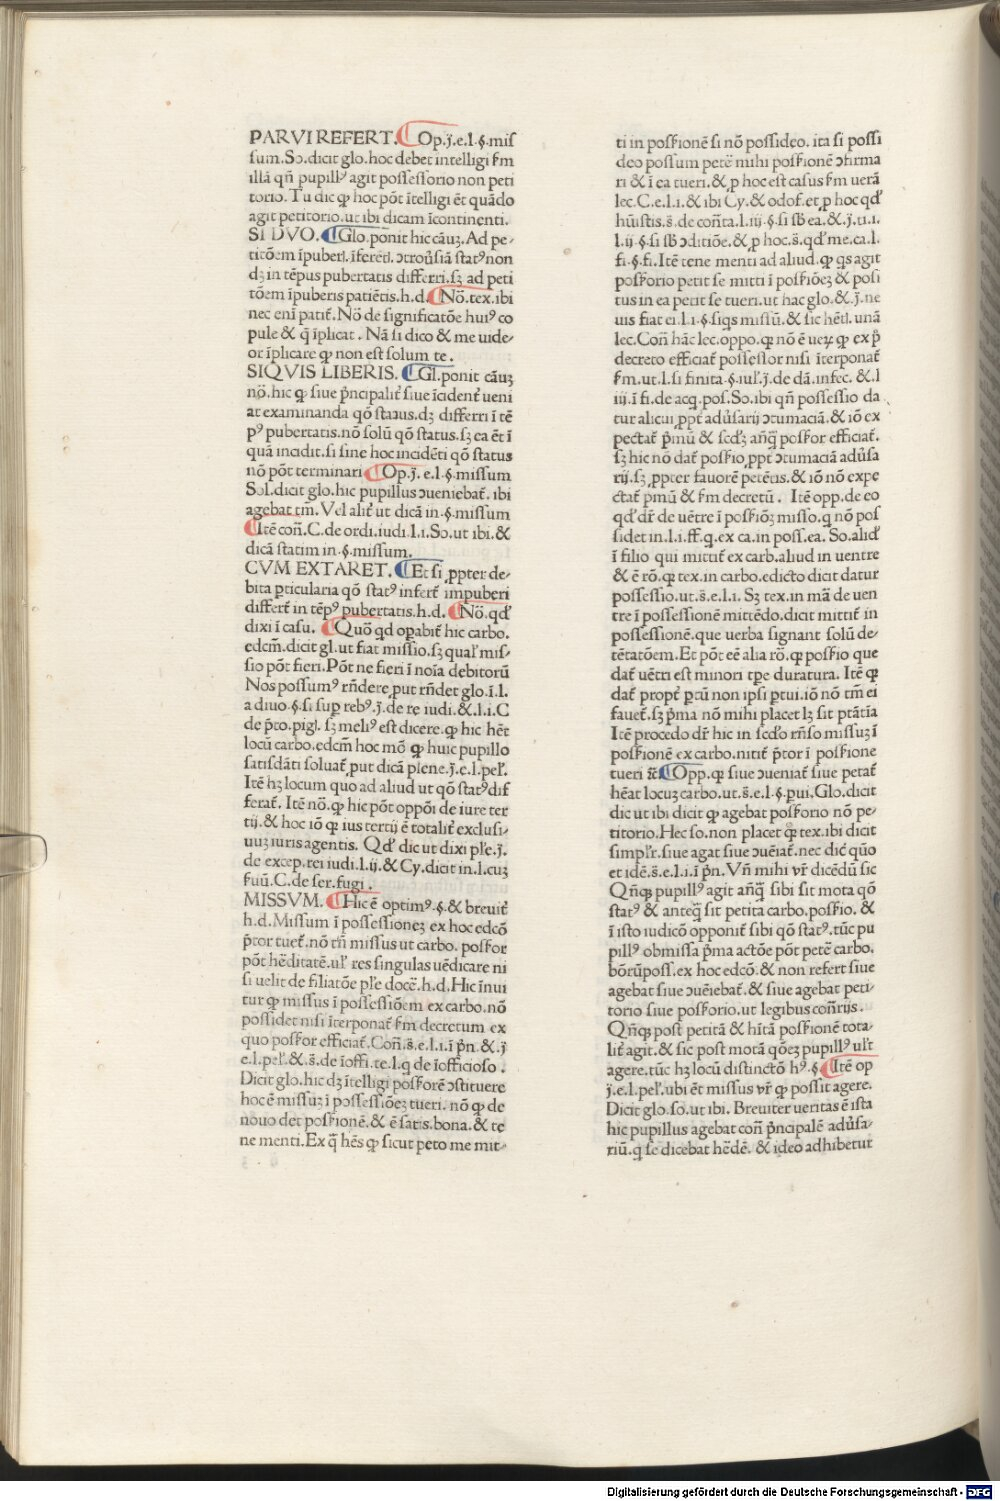 PARVI REFERT. Op.j̄.e.l.§.mis
sum. So. dicit glo. hoc debet intelligi ẜm
illā qn̄ pupillꝰ agit possessorio non peti
torio. Tu dic ꝙ hoc pōt ītelligi ēt quādo
agit petitorio. ut ibi dicam īcontinenti.
SI DVO. Glo. ponit hic cāuꝫ. Ad pe-
titōem īpuberl. īferētl. ↄtrouīsiā statꝰ non
dꝫ in tēpus pubertatis differri. sꝫ ad peti
tōem īpuberis patiētis. h.d. Nō. tex. ibi
nec enī patit̄. Nō de significatōe huiꝰ co
pule & q̄ īplicat. Nā si dico & me uide-
or īplicare ꝙ non est solum te.
SIQVIS LIBERIS. Gl. ponit cāuꝫ
nō. hic ꝙ siue p̄ncipalit̄ siue īcident̄ ueni
at examinanda qō status. dꝫ differri ī tē
pꝰ pubertatis. nō solū qō status. sꝫ ea ēt ī
quā incidit. si sine hoc incidēti qō status
nō pōt terminari Op.j̄. e.l.§.missum
Sol. dicit glo. hic pupillus ↄueniebat̄. ibi
agebat tm̄. Vel alit̄ ut dicā in.§.missum
Itē con̄. C. de ordi. iudi. l.i. So. ut ibi. &
dicā statim in.§.missum.
CVM EXTARET. Et si ꝓpter de-
bita ꝑticularia qō statꝰ infert̄ impuberi
differt̄ in tēpꝰ pubertatis. h.d. Nō. qd̄
dixi ī casu. Quō qd opabit̄ hic carbo.
edcm̄. dicit gl. ut fiat missio. sꝫ qual̄ mis-
sio pōt fieri. Pōt ne fieri ī noīa debitorū
Nos possumꝰ rn̄dere ꝓut rn̄det glo. ī. l.
a diuo.§.si suꝑ rebꝰ.j̄. de re iudi. &. l.i. C
de p̄to. pigl. sꝫ meliꝰ est dicere. ꝙ hic hēt
locū carbo. edcm̄ hoc mō ꝙ huic pupillo
satisdāti soluat̄ ꝓut dicā plene.j̄.e.l. pel̄.
Itē hꝫ locum quo ad aliud ut qō statꝰ dif
ferat̄. Itē nō. ꝙ hic pōt oppōi de iure ter
tij. & hoc iō ꝙ ius tertij ē totalit̄ exclusi-
uuꝫ iuris agentis. Qd̄ dic ut dixi pl̄e.j̄.
de excep. rei iudi. l.ij. & Cy. dicit in. l. cuꝫ
ẜuū. C. de ser. fugi.
MISSVM. Hic ē optimꝰ.§. & breuit̄
h.d. Missum ī possessioneꝫ ex hoc edcō
p̄tor tuet̄. nō tn̄ missus ut carbo. posẜor
pōt hēditatē. ul̄ res singulas uēdicare ni
si uelit de filiatōe pl̄e docē. h.d. Hic īnui
tur ꝙ missus ī possessiōem ex carbo. nō
possidet nisi īterponat̄ ẜm decretum ex
quo posẜor efficiat̄. Con̄.s̄.e.l.i. ī p̄n. &.j̄
e.l. pel̄. &.s̄. de īoffi. te. l. q̄ de īofficioso.
Dicit glo. hic dꝫ ītelligi posẜorē ↄstituere
hoc ē missuꝫ ī possessiōeꝫ tueri. nō ꝙ de
nouo det posẜionē. & ē satis. bona. & te
ne menti. Ex q̄ hēs ꝙ sicut peto me mit-
ti in posẜionē si nō possideo. ita si possi
deo possum petē mihi posẜionē ↄfirma
ri & ī ea tueri. & ꝓ hoc est casus ẜm uerā
lec. C. e.l.i. & ibi Cy. & odof. et ꝓ hoc qd̄
hūistis.s̄. de con̄ta. l. iij.§. si sb̄ ea. &.j̄. ti.i.
l.ij.§. si sb̄ ↄditiōe. & ꝓ hoc.s̄. qd̄ me. ca. l.
fi.§.fi. Itē tene menti ad aliud. ꝙ qs agit
posẜorio petit se mitti ī posẜiōeꝫ & posi
tus in ea petit se tueri. ut hac glo. &.j̄. ne
uis fiat ei. l.i.§.siqs missū. & sic hētl. unā
lec. Con̄ hāc lec. oppo. ꝙ nō ē ueꝝ ꝙ ex p̄
decreto efficiat̄ possessor nisi īterponat̄
ẜm. ut. l. si finita.§.iul̄.j̄. de dā. infec. &. l
iij. ī fi. de acq. pos. So. ibi qn̄ possessio da
tur alicui ꝓpt̄ adūsarij ↄtumaciā. & iō ex
pectat̄ p̄mū & scd̄ꝫ anq̄ꝫ posẜor efficiat̄.
sꝫ hic nō dat̄ posẜio ꝓpt̄ ↄtumaciā adūsa
rij. sꝫ ꝓpter fauorē petētis. & iō nō expe
ctat̄ p̄mū & ẜm decretū. Itē opp. de eo
qd̄ dr̄ de uētre ī posẜiōꝫ misso. q nō pos
sidet in. l.i. ff. q. ex ca. in poss. ea. So. aliđ
ī filio qui mittit̄ ex carb. aliud in uentre
& ē rō. ꝙ tex. in carbo. edicto dicit datur
possessio. ut.s̄.e.l.i. Sꝫ tex. in mā de uen
tre ī possessionē mittēdo. dicit mittit̄ in
possessionē. que uerba signant solū de-
tētatōem. Et pōt eē alia rō. ꝙ posẜio que
dat̄ uētri est minori tꝑe duratura. Itē ꝙ
dat̄ propt̄ ꝑtū non ipsi ꝑtui. iō nō tm̄ ei
fauet̄. sꝫ p̄ma nō mihi placet lꝫ sit ptātīa
Itē procedo dr̄ hic in scd̄o rn̄so missuꝫ ī
posẜionē ex carbo. nitit̄ p̄tor ī posẜione
tueri ⁊c̄ Opp. ꝙ siue ↄueniat̄ siue petat̄
hēat locuꝫ carbo. ut.s̄.e.l.§.ꝑui. Glo. dicit
dic ut ibi dicit ꝙ agebat posẜorio nō pe-
titorio. Hec so. non placet ꝙ tex. ibi dicit
simpl̄r. siue agat siue ↄuēiat̄. nec dic̄ quō
et idē.s̄.e.l.i. ī p̄n. Vn̄ mihi vr̄ dicēdū sic
Qn̄qꝫ pupillꝰ agit anq̄ꝫ sibi sit mota qō
statꝰ & anteq̄ sit petita carbo. posẜio. &
ī isto iudicō opponit̄ sibi qō statꝰ. tūc pu
pillꝰ obmissa p̄ma actōe pōt petē carbo.
bōrūposs. ex hoc edcō. & non refert siue
agebat siue ↄuēiebat̄. & siue agebat peti-
torio siue posẜorio. ut legibus con̄rijs.
Qn̄qꝫ post petitā & hītā posẜionē tota-
lit̄ agit. & sic post motā qōeꝫ pupillꝰ ul̄t
agere. tūc hꝫ locū distinctō hꝰ.§ Itē op
j̄.e.l. pel̄. ubi ēt missus vr̄ ꝙ possit agere.
Dicit glo. so. ut ibi. Breuiter ueritas ē ista
hic pupillus agebat con̄ p̄ncipalē adūsa-
riū. q se dicebat hēdē. & ideo adhibetur
Digitalisierung gefördert durch die Deutsche Forschungsgemeinschaft - DFG